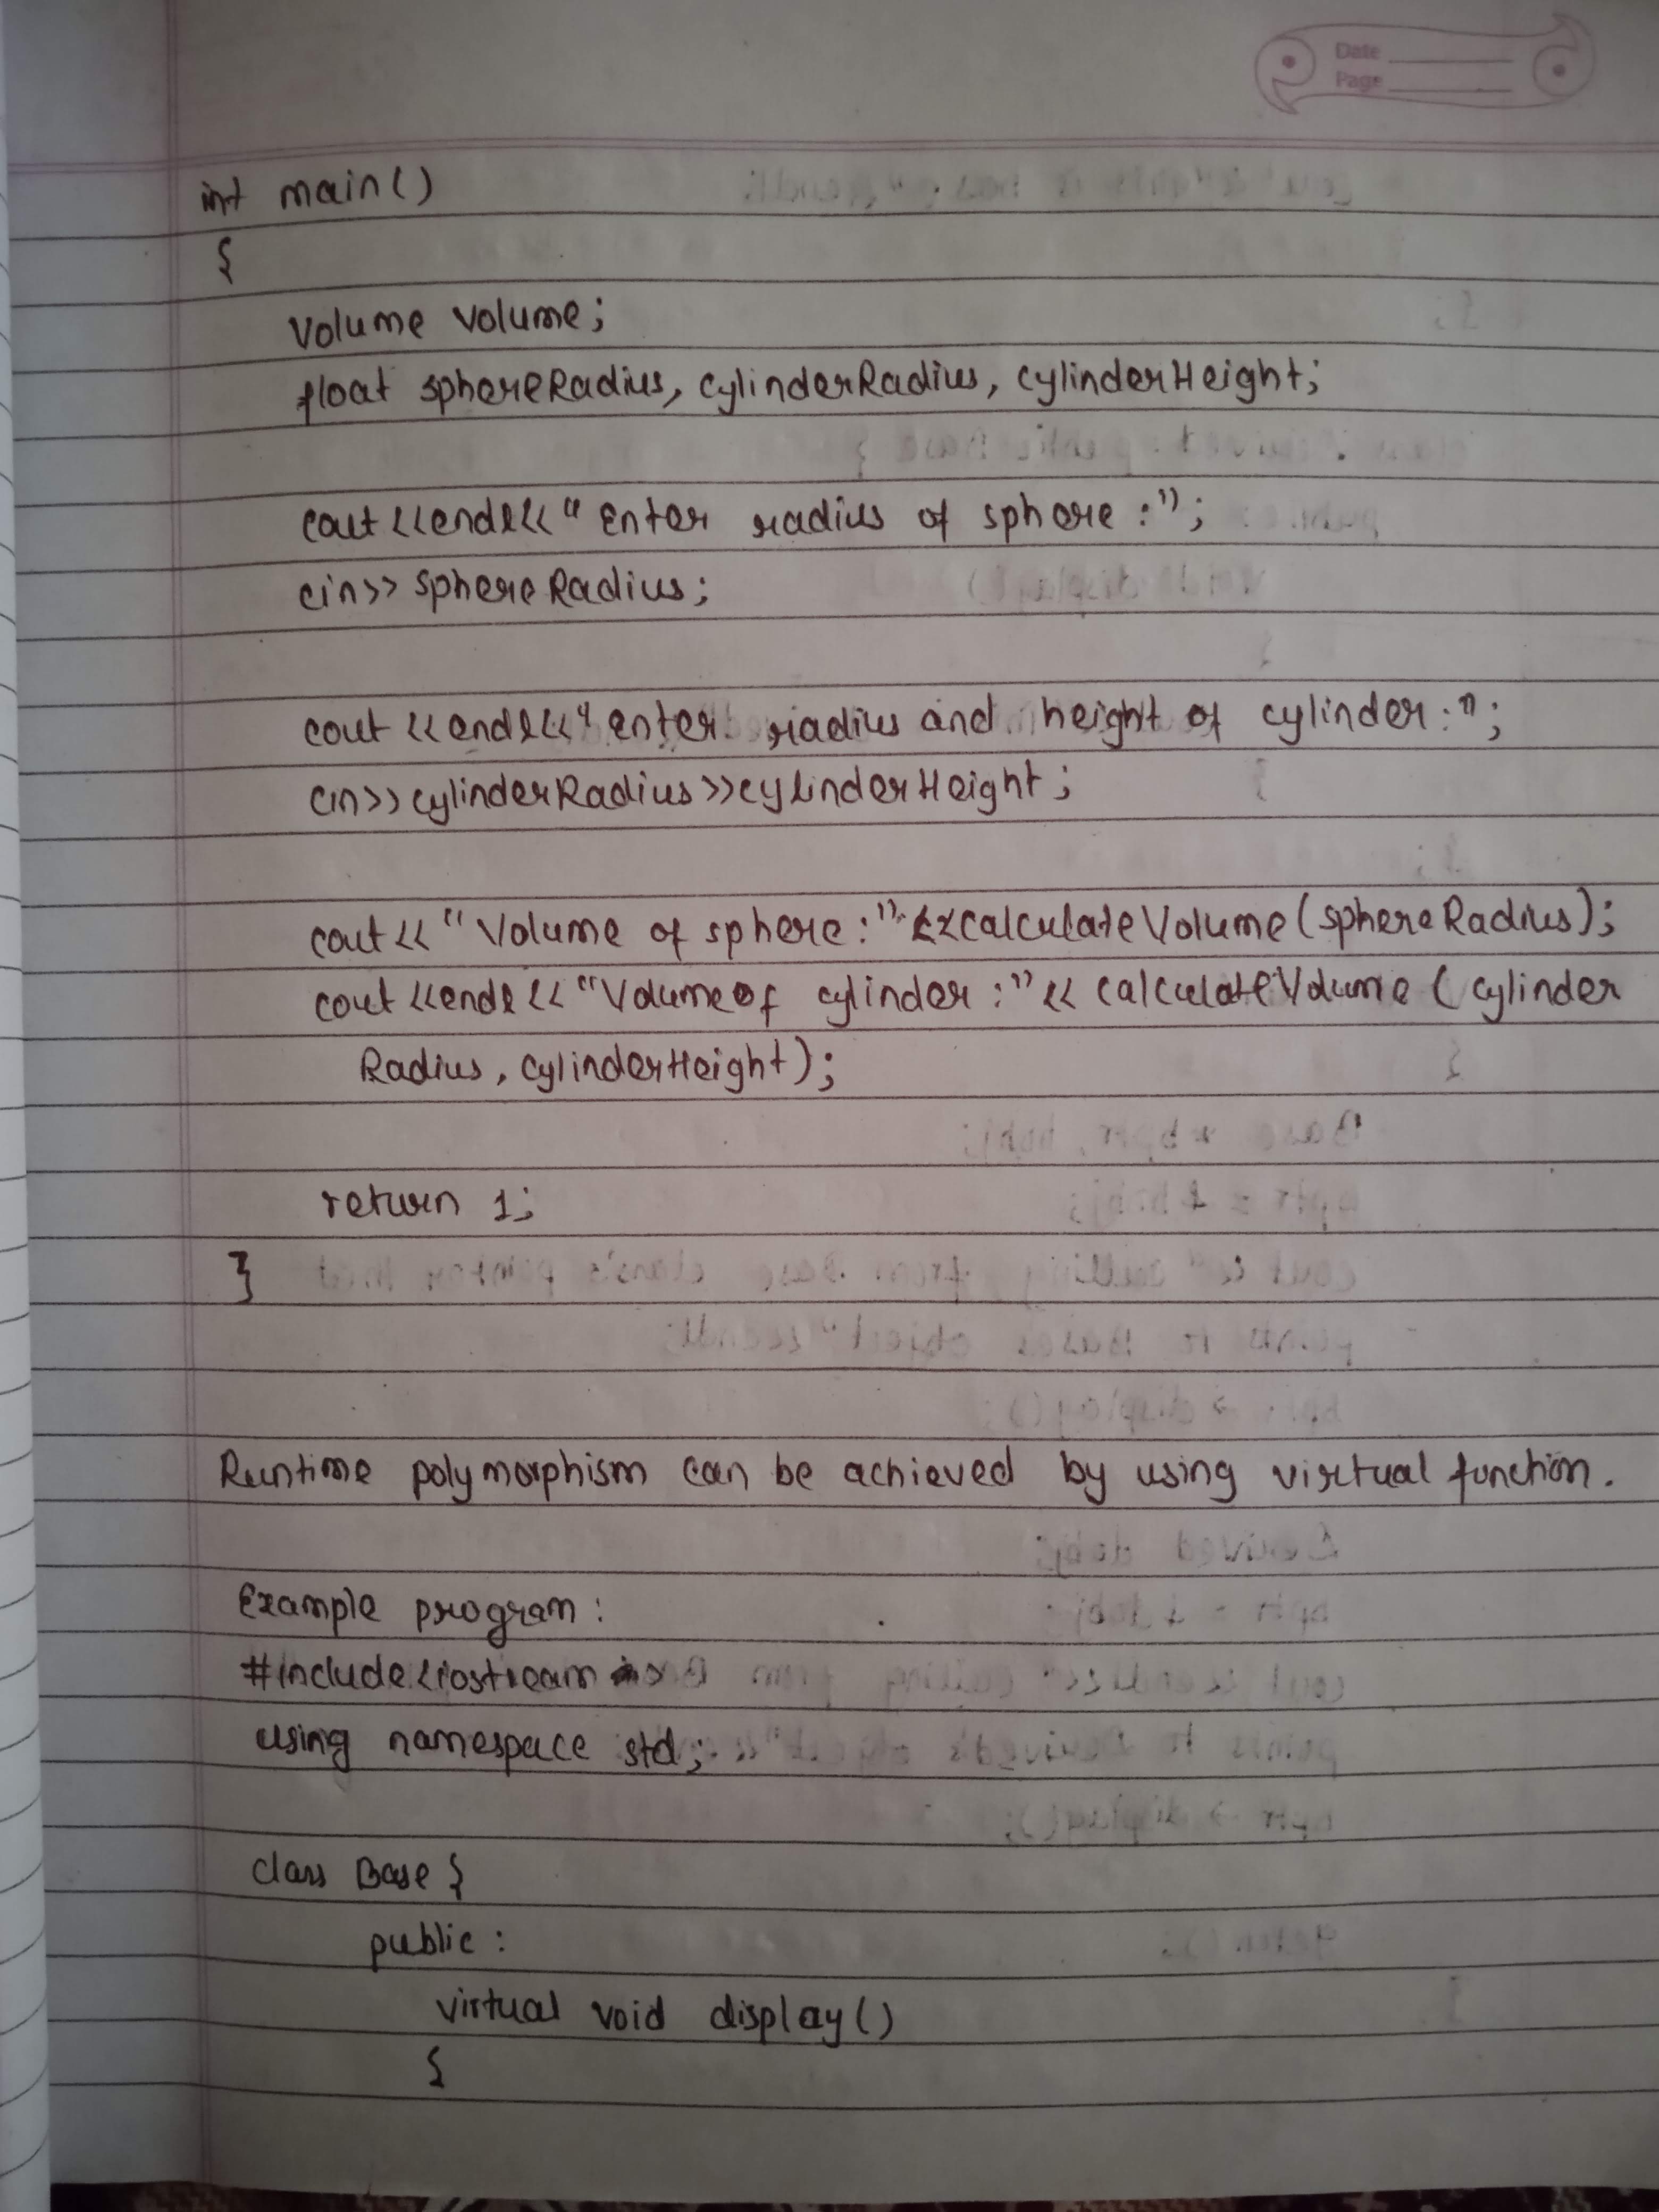 Date
Page
int main()
{
Volume volume;
float sphereRadius, cylinderRadius, cylinderHeight;
cout<<endl<<"Enter radius of sphere:";
cin>>sphereRadius;
cout<<endl<<"enter radius and height of cylinder:";
cin>>cylinderRadius>>cylinderHeight;
cout<<"Volume of sphere:"<<calculateVolume(sphereRadius);
cout<<endl<<"Volume of cylinder:"<<calculateVolume(cylinder
Radius, cylinderHeight);
return 1;
}
Runtime polymorphism can be achieved by using virtual function.
Example program:
#include<iostream>
using namespace std;
class Base{
public:
virtual void display()
{